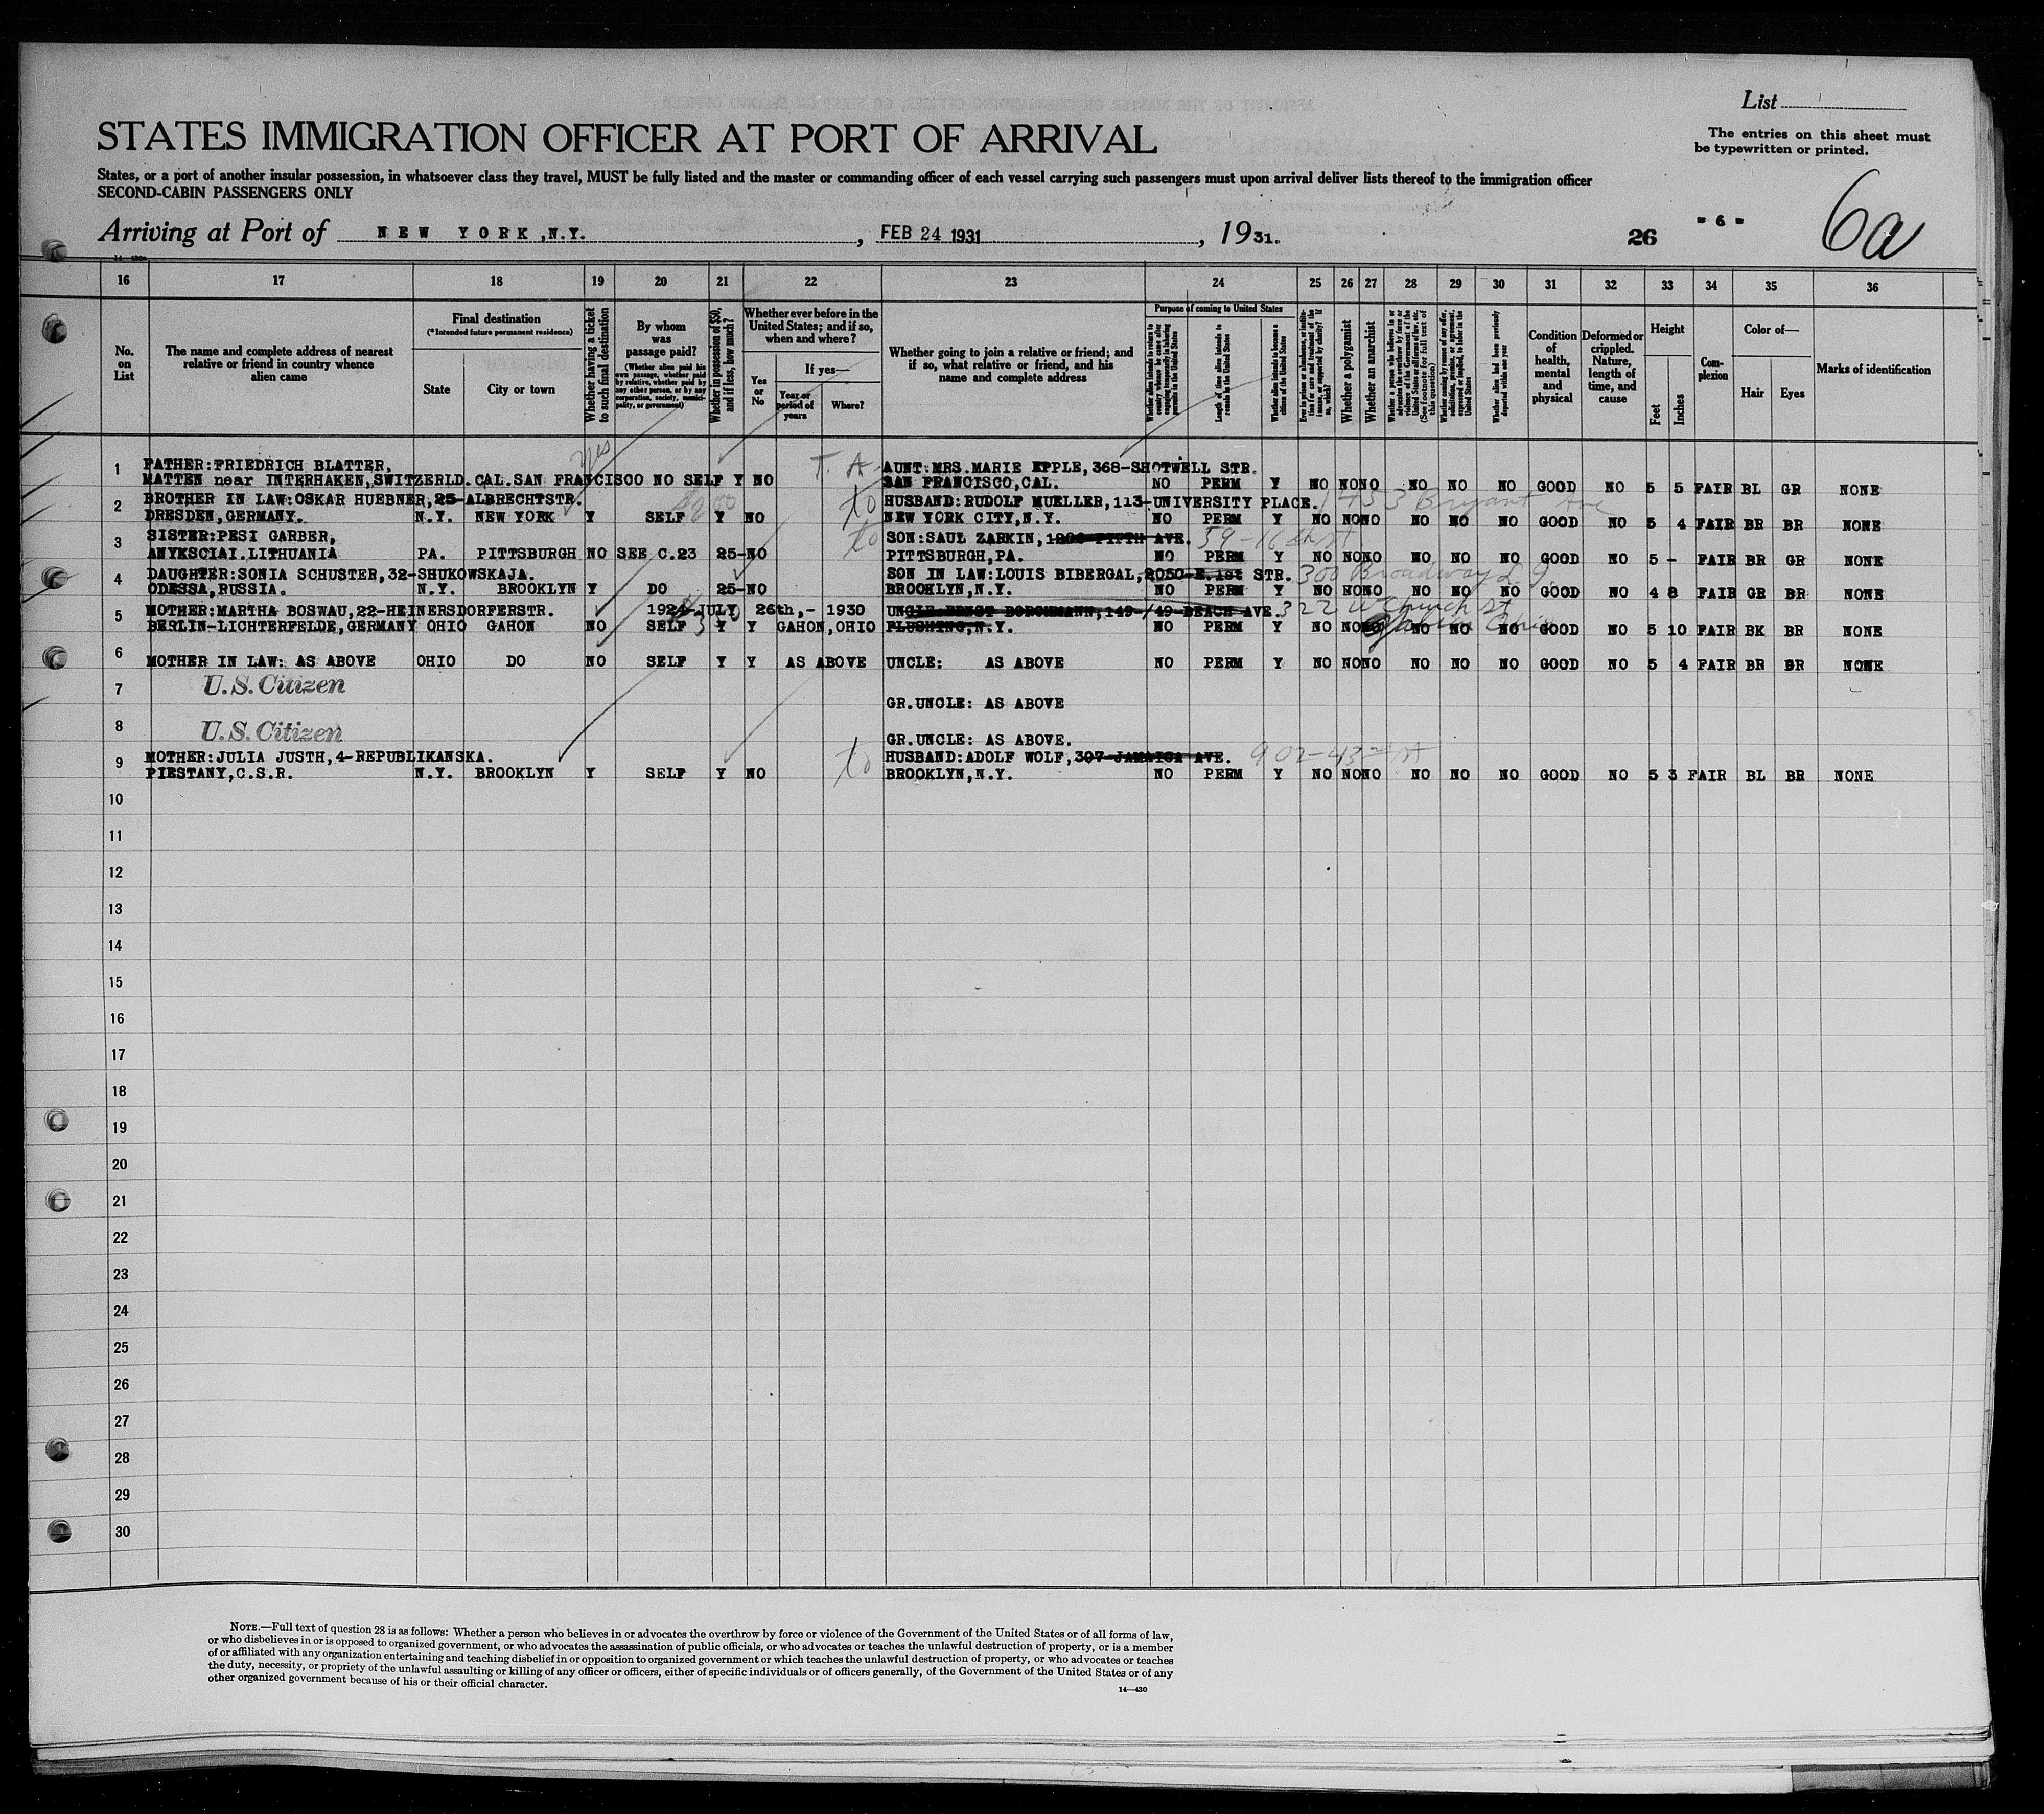 List
STATES IMMIGRATION OFFICER AT PORT OF ARRIVAL
The entries on this sheet must
be typewritten or printed.
States, or a port of another insular possession, in whatsoever class they travel, MUST be fully listed and the master or commanding officer of each vessel carrying such passengers must upon arrival deliver lists thereof to the immigration officer
SECOND-CABIN PASSENGERS ONLY
Arriving at Port of NEW YORK,N.Y. , FEB 24 1931 , 1931. 26 - 6 - 6a
16 17 18 19 20 21 22 23 24 25 26 27 28 29 30 31 32 33 34 35 36
No. on List
The name and complete address of nearest relative or friend in country whence alien came
Final destination
(*Intended future permanent residence)
State
City or town
Whether having a ticket to such final destination
By whom was passage paid?
(Whether alien paid his own passage, whether paid by relative, whether paid by any other person, or by any corporation, society, municipality, or government)
Whether in possession of $50, and if less, how much?
Whether ever before in the United States; and if so, when and where?
Yes or No
If yes—
Year or period of years
Where?
Whether going to join a relative or friend; and if so, what relative or friend, and his name and complete address
Purpose of coming to United States
Length of time alien intends to remain in the United States
Whether alien intends to become a citizen of the United States
Whether a polygamist
Whether an anarchist
Condition of health, mental and physical
Deformed or crippled. Nature, length of time, and cause
Height
Feet
Inches
Complexion
Color of—
Hair
Eyes
Marks of identification
yes T. A.
1 FATHER:FRIEDRICH BLATTER, AUNT:MRS.MARIE EPPLE,368-SHOTWELL STR.
MATTEN near INTERHAKEN,SWITZERLD.CAL.SAN FRANCISOO NO SELF Y NO SAN FRANCISCO,CAL. NO PERM Y NO NO NO NO NO NO GOOD NO 5 5 FAIR BL GR NONE
2 BROTHER IN LAW:OSKAR HUEBNER,25-ALBRECHTSTR. to HUSBAND:RUDOLF MUELLER,113-UNIVERSITY PLACE. 1453 Bryant Ave
DRESDEN,GERMANY. N.Y. NEW YORK Y SELF Y NO NEW YORK CITY,N.Y. NO PERM Y NO NO NO NO NO NO GOOD NO 5 4 FAIR BR BR NONE
3 SISTER:PESI GARBER, to SON:SAUL ZARKIN, FIFTH AVE. 59-16th St
ANYKSCIAI.LITHUANIA PA. PITTSBURGH NO SEE C.23 25-NO PITTSBURGH,PA. NO PERM Y NO NO NO NO NO NO GOOD NO 5 - FAIR BR GR NONE
4 DAUGHTER:SONIA SCHUSTER,32-SHUKOWSKAJA. SON IN LAW:LOUIS BIBERGAL,2050-E.1st STR. 300 Broadway
ODESSA,RUSSIA. N.Y. BROOKLYN Y DO 25-NO BROOKLYN,N.Y. NO PERM Y NO NO NO NO NO NO GOOD NO 4 8 FAIR GR BR NONE
5 MOTHER:MARTHA BOSWAU,22-HEINERSDORFERSTR. 1924-JULY 26th,- 1930 UNCLE ERNST BORCHMANN,149-/49-BEACH AVE. 322 W Church St
BERLIN-LICHTERFELDE,GERMANY OHIO GAHON NO SELF Y Y GAHON,OHIO FLUSHING,N.Y. NO PERM Y NO NO NO NO NO NO GOOD NO 5 10 FAIR BK BR NONE
6 MOTHER IN LAW: AS ABOVE OHIO DO NO SELF Y Y AS ABOVE UNCLE: AS ABOVE NO PERM Y NO NO NO NO NO NO GOOD NO 5 4 FAIR BR BR NONE
7 U.S. Citizen GR.UNCLE: AS ABOVE
8 U.S. Citizen GR.UNCLE: AS ABOVE.
9 MOTHER:JULIA JUSTH,4-REPUBLIKANSKA. to HUSBAND:ADOLF WOLF,307-JAMAICA AVE. 902-43rd St
PIESTANY,C.S.R. N.Y. BROOKLYN Y SELF Y NO BROOKLYN,N.Y. NO PERM Y NO NO NO NO NO NO GOOD NO 5 3 FAIR BL BR NONE
10
11
12
13
14
15
16
17
18
19
20
21
22
23
24
25
26
27
28
29
30
NOTE.—Full text of question 28 is as follows: Whether a person who believes in or advocates the overthrow by force or violence of the Government of the United States or of all forms of law,
or who disbelieves in or is opposed to organized government, or who advocates the assassination of public officials, or who advocates or teaches the unlawful destruction of property, or is a member
of or affiliated with any organization entertaining and teaching disbelief in or opposition to organized government or which teaches the unlawful destruction of property, or who advocates or teaches
the duty, necessity, or propriety of the unlawful assaulting or killing of any officer or officers, either of specific individuals or of officers generally, of the Government of the United States or of any
other organized government because of his or their official character.
14—430